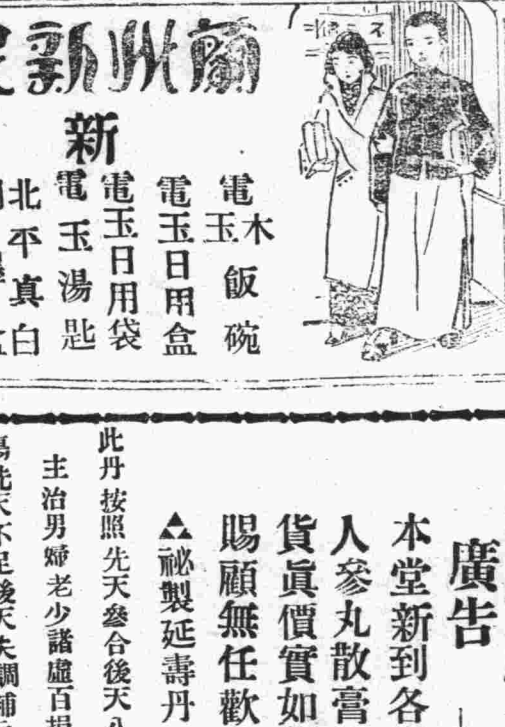 蘭州新
新
電木飯碗
玉
電玉日用盒
電玉日用袋
電玉湯匙
北平真白
廣告
本堂新到各
人參丸散膏
貨眞價實如
賜顧無任歡
祕製延壽丹
此丹按照先天參合後天
主治男婦老少諸虛百損
先天不足後天失調補